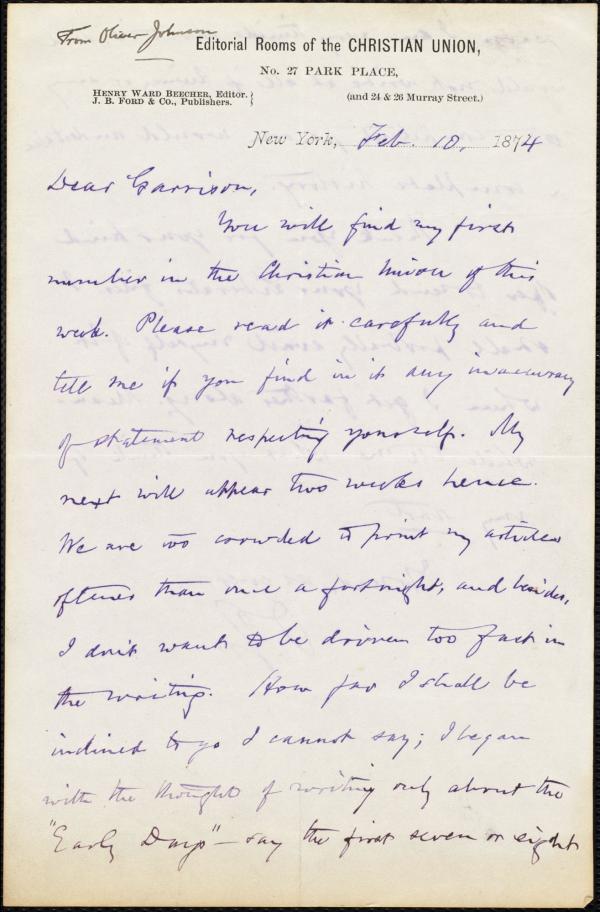 From Oliver Johnson
Editorial Rooms of the CHRISTIAN UNION,
No. 27 PARK PLACE,
HENRY WARD BEECHER, Editor.
J. B. FORD & CO., Publishers.
(and 24 & 26 Murray Street.)
New York, Feb. 10, 1874
Dear Garrison,
You will find my first
number in the Christian Union of this
week. Please read it carefully and
tell me if you find in it any inaccuracy
of statement respecting yourself. My
next will appear two weeks hence.
We are too crowded to print my articles
oftener than once a fortnight, and besides,
I don't want to be driven too fast in
the writing. How far I shall be
inclined to go I cannot say; I began
with the thought of writing only about the
"Early Days" — say the first seven or eight